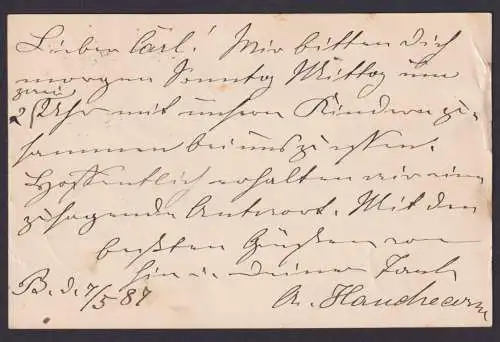 Lieber Carl! Wir bitten Dich
morgen Sonntag Mittag um
zwei
2 Uhr mit unsern Kindern zu-
sammen bei uns zu essen.
Hoffentlich erhalten wir eine
zusagende Antwort. Mit den
besten Grüßen von
hier Deiner
B. d. 7/5 87 A. Hauchecorne